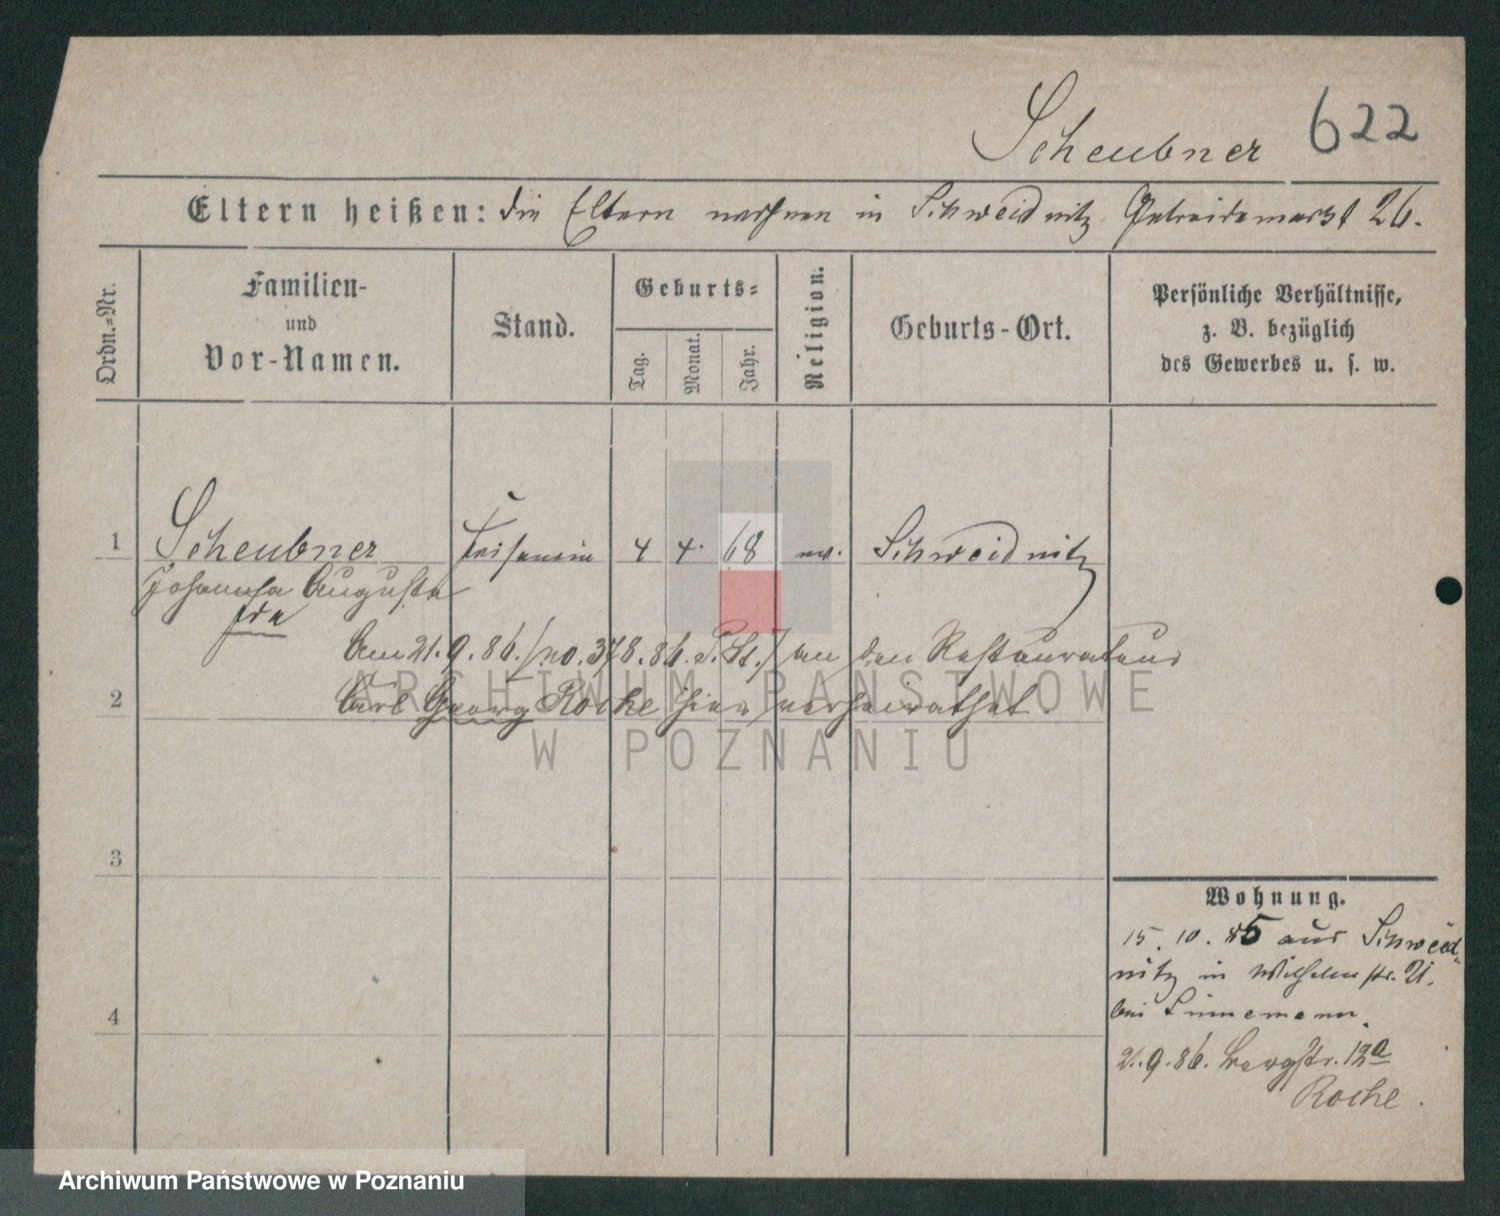 Scheubner 622
Eltern heißen: die Eltern wohnen in Schweidnitz Getreidemarkt 26.
Ordn.=Nr.
Familien-
und
Vor-Namen.
Stand.
Geburts=
Tag.
Monat.
Jahr.
Religion.
Geburts-Ort.
Persönliche Verhältnisse,
z. B. bezüglich
des Gewerbes u. s. w.
1 Scheubner 4 4. 68 ev. Schweidnitz
Johanna Augusta
Ida
Am 21.9.86. / no. 378.86. P. St. / an den Restaurateur
2 Carl Georg Roche hier verheirathet.
ARCHIWUM PAŃSTWOWE
W POZNANIU
3
4
Wohnung.
15. 10. 85 aus Schweid-
nitz in Wilhelmstr. 21.
bei Linnemann.
21.9.86. Bergstr. 12a
Roche.
Archiwum Państwowe w Poznaniu